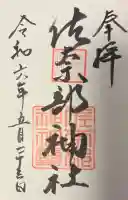 奉拝
佐奈部神社
令和六年五月二十三日